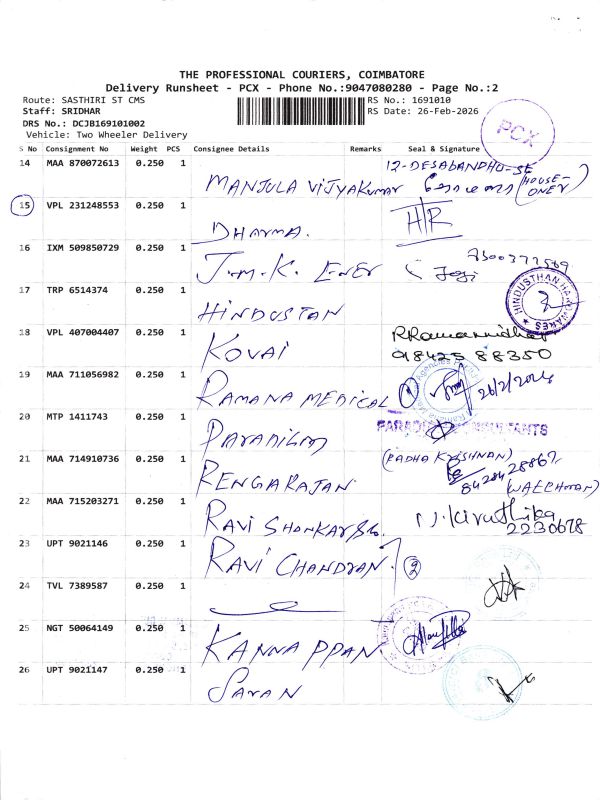 THE PROFESSIONAL COURIERS, COIMBATORE
Delivery Runsheet - PCX - Phone No.:9047080280 - Page No.:2
Route: SASTHIRI ST CMS
Staff: SRIDHAR
DRS No.: DCJB169101002
Vehicle: Two Wheeler Delivery
RS No.: 1691010
RS Date: 26-Feb-2026
PCX
S No Consignment No Weight PCS Consignee Details Remarks Seal & Signature
14 MAA 870072613 0.250 1 MANJULA VIJYAKUMAR 12-DESABANDHU-SE (HOUSE-ONER)
15 VPL 231248553 0.250 1 DHARMA. H/R
16 IXM 509850729 0.250 1 J.M.K. ENER 7300377569
17 TRP 6514374 0.250 1 HINDUSTAN HINDUSTHAN
18 VPL 407004407 0.250 1 KOVAI
98425 88350
19 MAA 711056982 0.250 1 RAMANA MEDICAL 1 26/2/2026
20 MTP 1411743 0.250 1
21 MAA 714910736 0.250 1 RENGARAJAN. (RADHA KRISHNAN)
8428428867
(WATCHMAN)
22 MAA 715203271 0.250 1 RAVI SHANKAR N.Kiruthika
2230678
23 UPT 9021146 0.250 1 RAVI CHANDRAN. 2
24 TVL 7389587 0.250 1
25 NGT 50064149 0.250 1 KANNAPPAN
26 UPT 9021147 0.250 1 SARAN